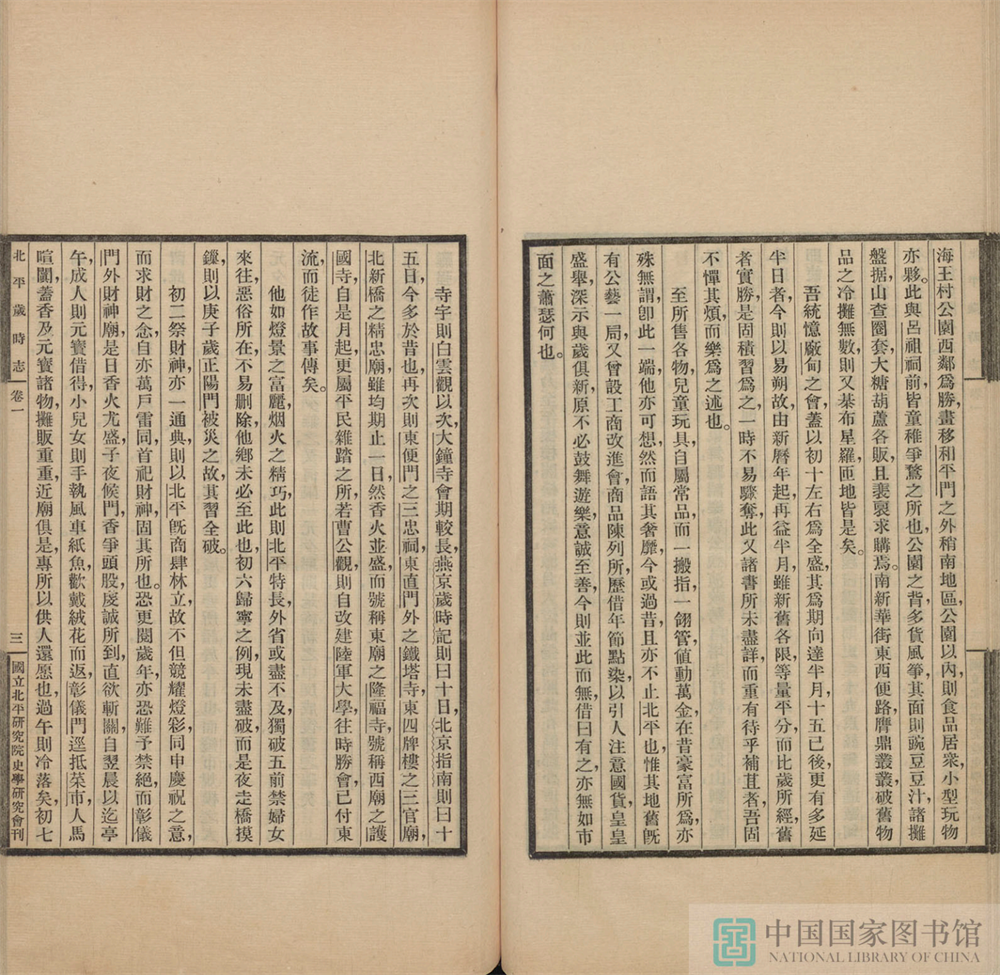 海王村公園西鄰爲勝畫移和平門之外稍南地區公園以內則食品居衆小型玩物
亦夥。此與呂祖祠前皆童稚爭鶩之所也公園之背多貨風箏其面則豌豆豆汁諸攤
盤据山查圈套大糖葫蘆各販且裹裹求購焉。南新華街東西便路贗鼎叢叢破舊物
品之冷攤無數則又棊布星羅匝地皆是矣。
吾統憶廠甸之會蓋以初十左右爲全盛其爲期向達半月十五已後更有多延
半日者今則以易朔故由新曆年起再益半月雖新舊各限等量平分而比歲所經舊
者實勝是固積習爲之一時不易驟奪此又諸書所未盡詳而重有待乎補苴者吾固
不憚其煩而樂爲之述也。
至所售各物兒童玩具自屬常品而一搬指一翎管値動萬金在昔豪富所爲亦
殊無謂卽此一端他亦可想然而語其奢靡今或過昔且亦不止北平也惟其地舊旣
有公藝一局又曾設工商改進會商品陳列所歷借年節點染以引人注意國貨皇皇
盛舉深示與歲俱新原不必鼓舞遊樂意誠至善今則並此而無借曰有之亦無如市
面之蕭瑟何也。
寺宇則白雲觀以次大鐘寺會期較長燕京歲時記則曰十日北京指南則曰十
五日今多於昔也再次則東便門之三忠祠東直門外之鐵塔寺東四牌樓之三官廟
北新橋之精忠廟雖均期止一日然香火並盛而號稱東廟之隆福寺號稱西廟之護
國寺自是月起更屬平民雜踏之所若曹公觀則自改建陸軍大學往時勝會已付東
流而徒作故事傳矣。
他如燈景之富麗烟火之精巧此則北平特長外省或盡不及獨破五前禁婦女
來往惡俗所在不易删除他鄉未必至此也初六歸寧之例現未盡破而是夜走橋摸
鏁則以庚子歲正陽門被災之故其習全破。
初二祭財神亦一通典則以北平旣商肆林立故不但競耀燈彩同申慶祝之意
而求財之念自亦萬戶雷同首祀財神固其所也。恐更閱歲年亦恐難予禁絶而彰儀
門外財神廟是日香火尤盛子夜候門香爭頭股虔誠所到直欲斬關自翌晨以迄亭
午成人則元寶借得小兒女則手執風車紙魚歡戴絨花而返彰儀門逕抵菜市人馬
喧闐蓋香及元寶諸物攤販重重近廟俱是專所以供人還愿也過午則冷落矣初七
北平歲時志 卷一 三 國立北平研究院史學研究會刊
中国国家图书馆
NATIONAL LIBRARY OF CHINA